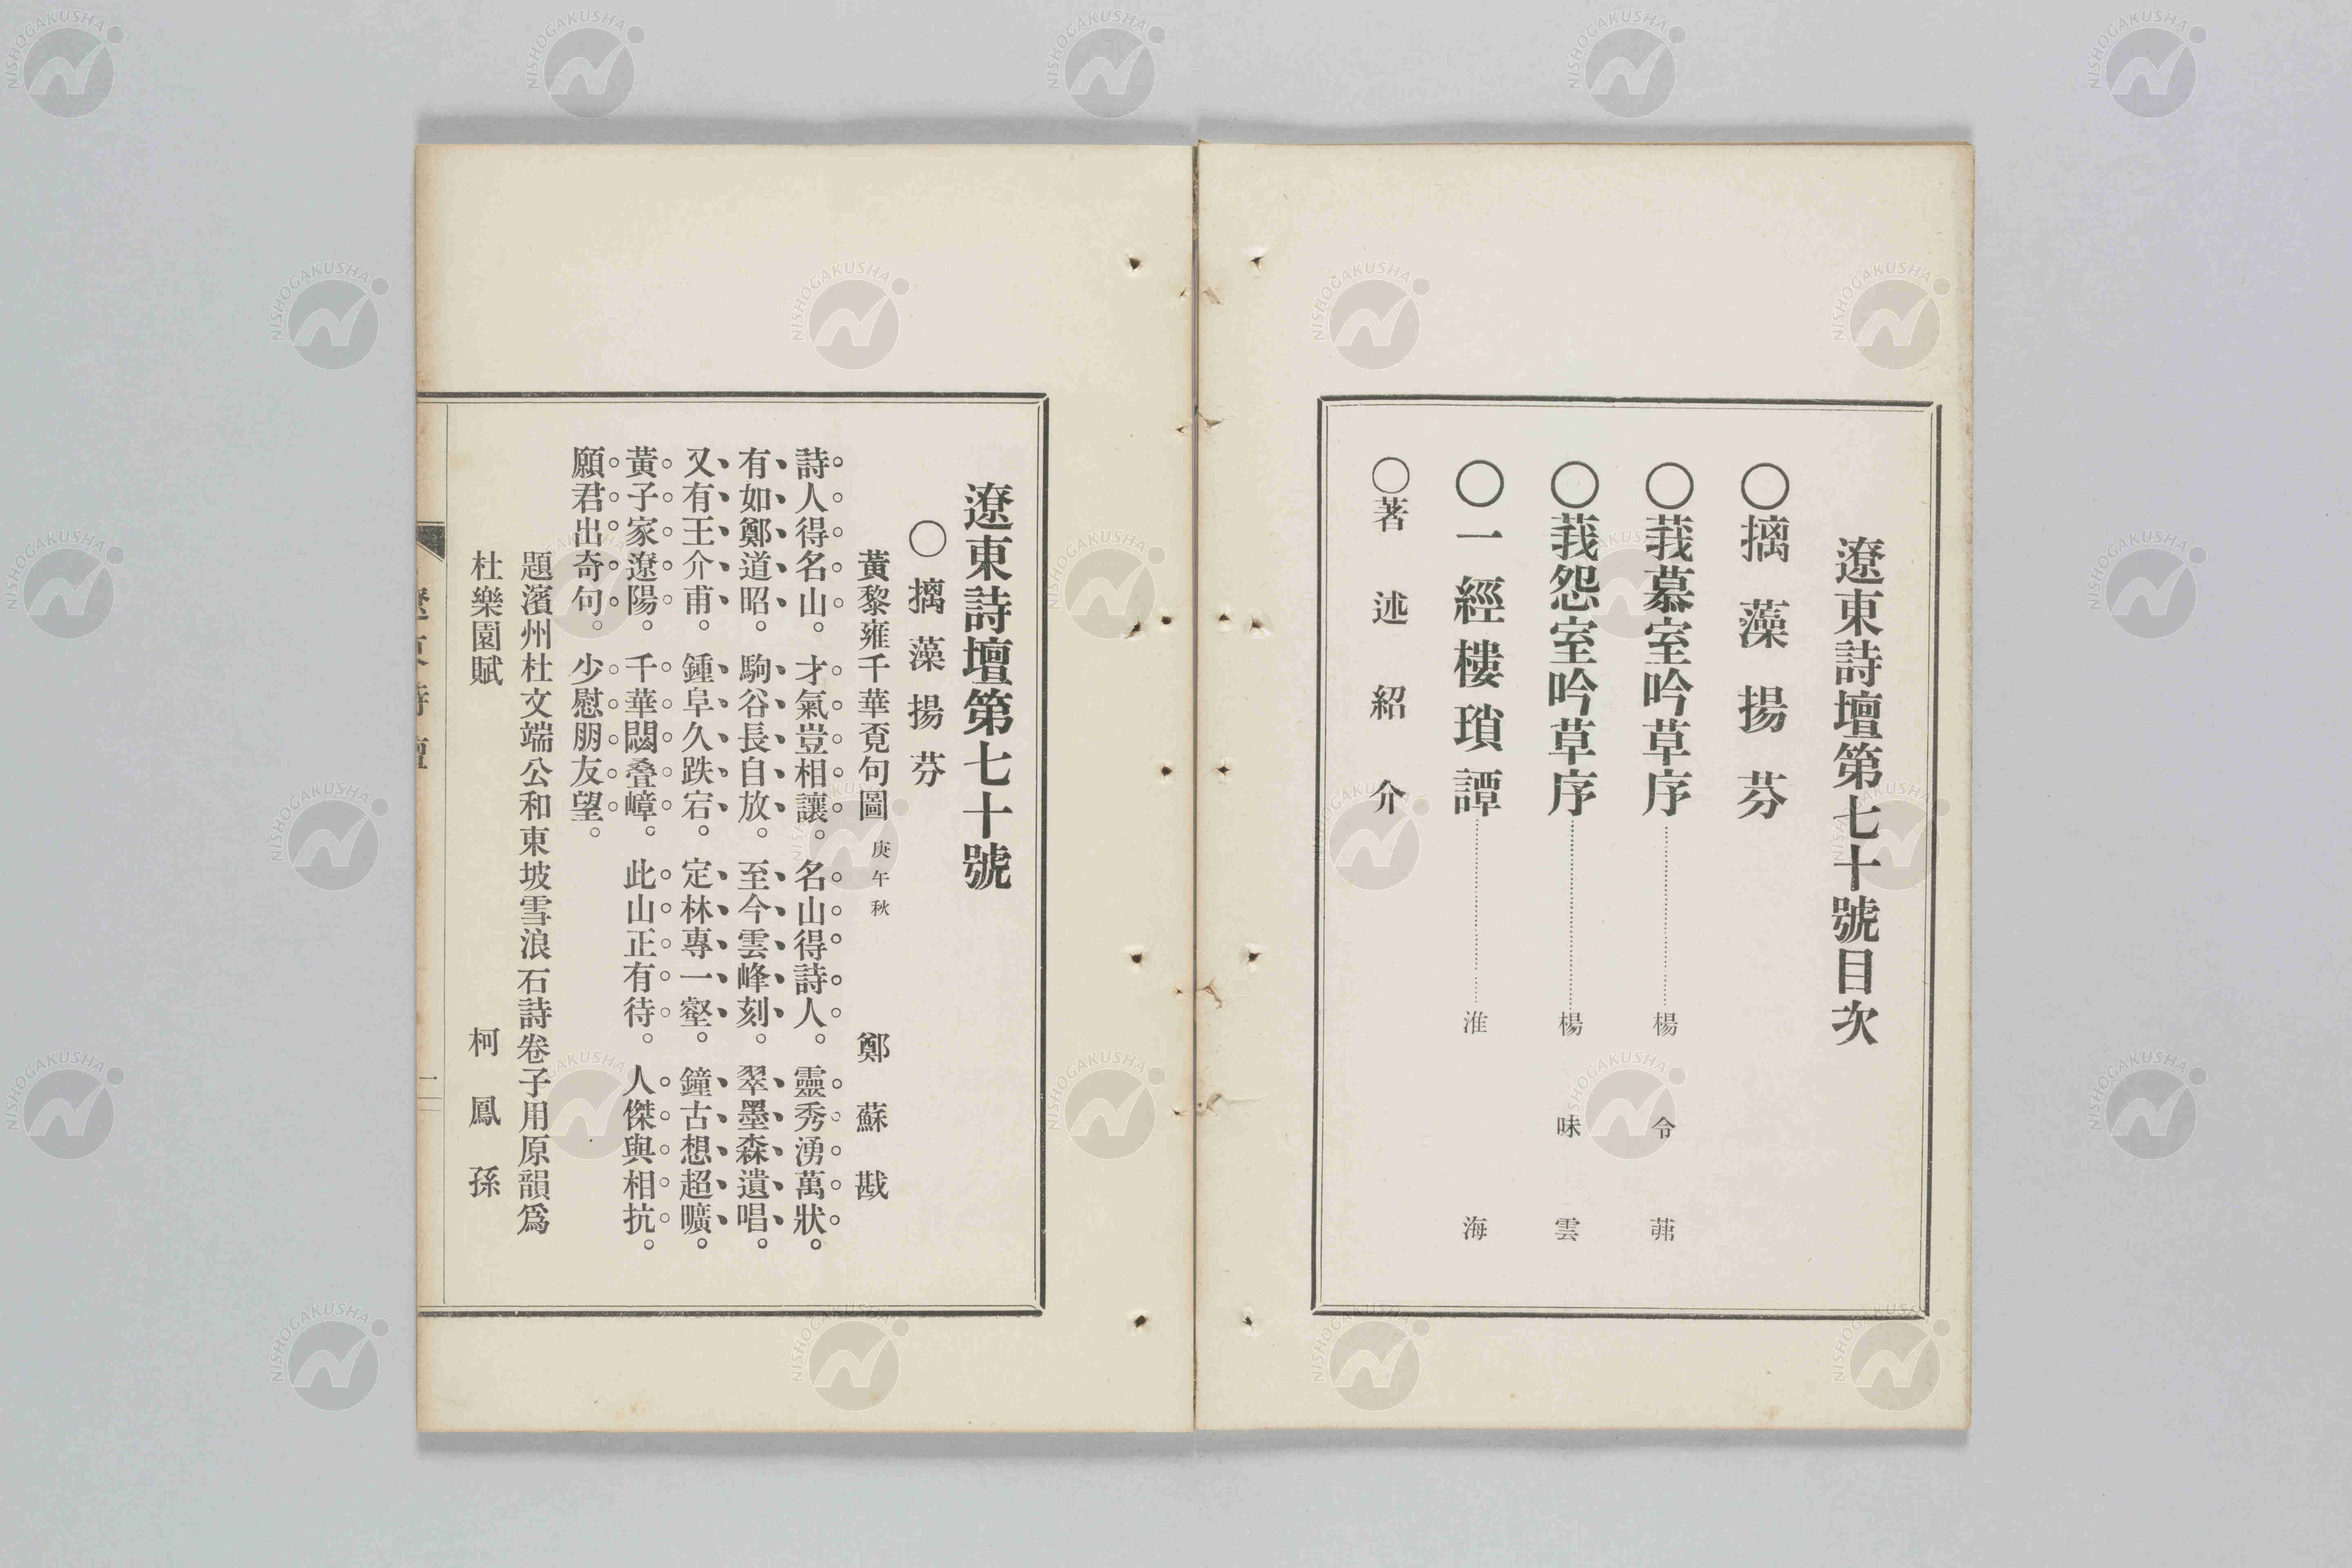 遼東詩壇第七十號目次
○摛藻揚芬
○莪慕室吟草序 楊令茀
○莪怨室吟草序 楊味雲
○一經樓瑣譚 淮海
○著述紹介
遼東詩壇第七十號
○摛藻揚芬
黃黎雍千華覔句圖 庚午秋 鄭蘇戡
詩人得名山。才氣豈相讓。名山得詩人。靈秀湧萬狀。
有如鄭道昭。駒谷長自放。至今雲峰刻。翠墨森遺唱。
又有王介甫。鍾阜久跌宕。定林專一壑。鐘古想超曠。
黃子家遼陽。千華閟叠嶂。此山正有待。人傑與相抗。
願君出奇句。少慰朋友望。
題濱州杜文端公和東坡雪浪石詩卷子用原韻爲
杜樂園賦 柯鳳孫
NISHOGAKUSHA